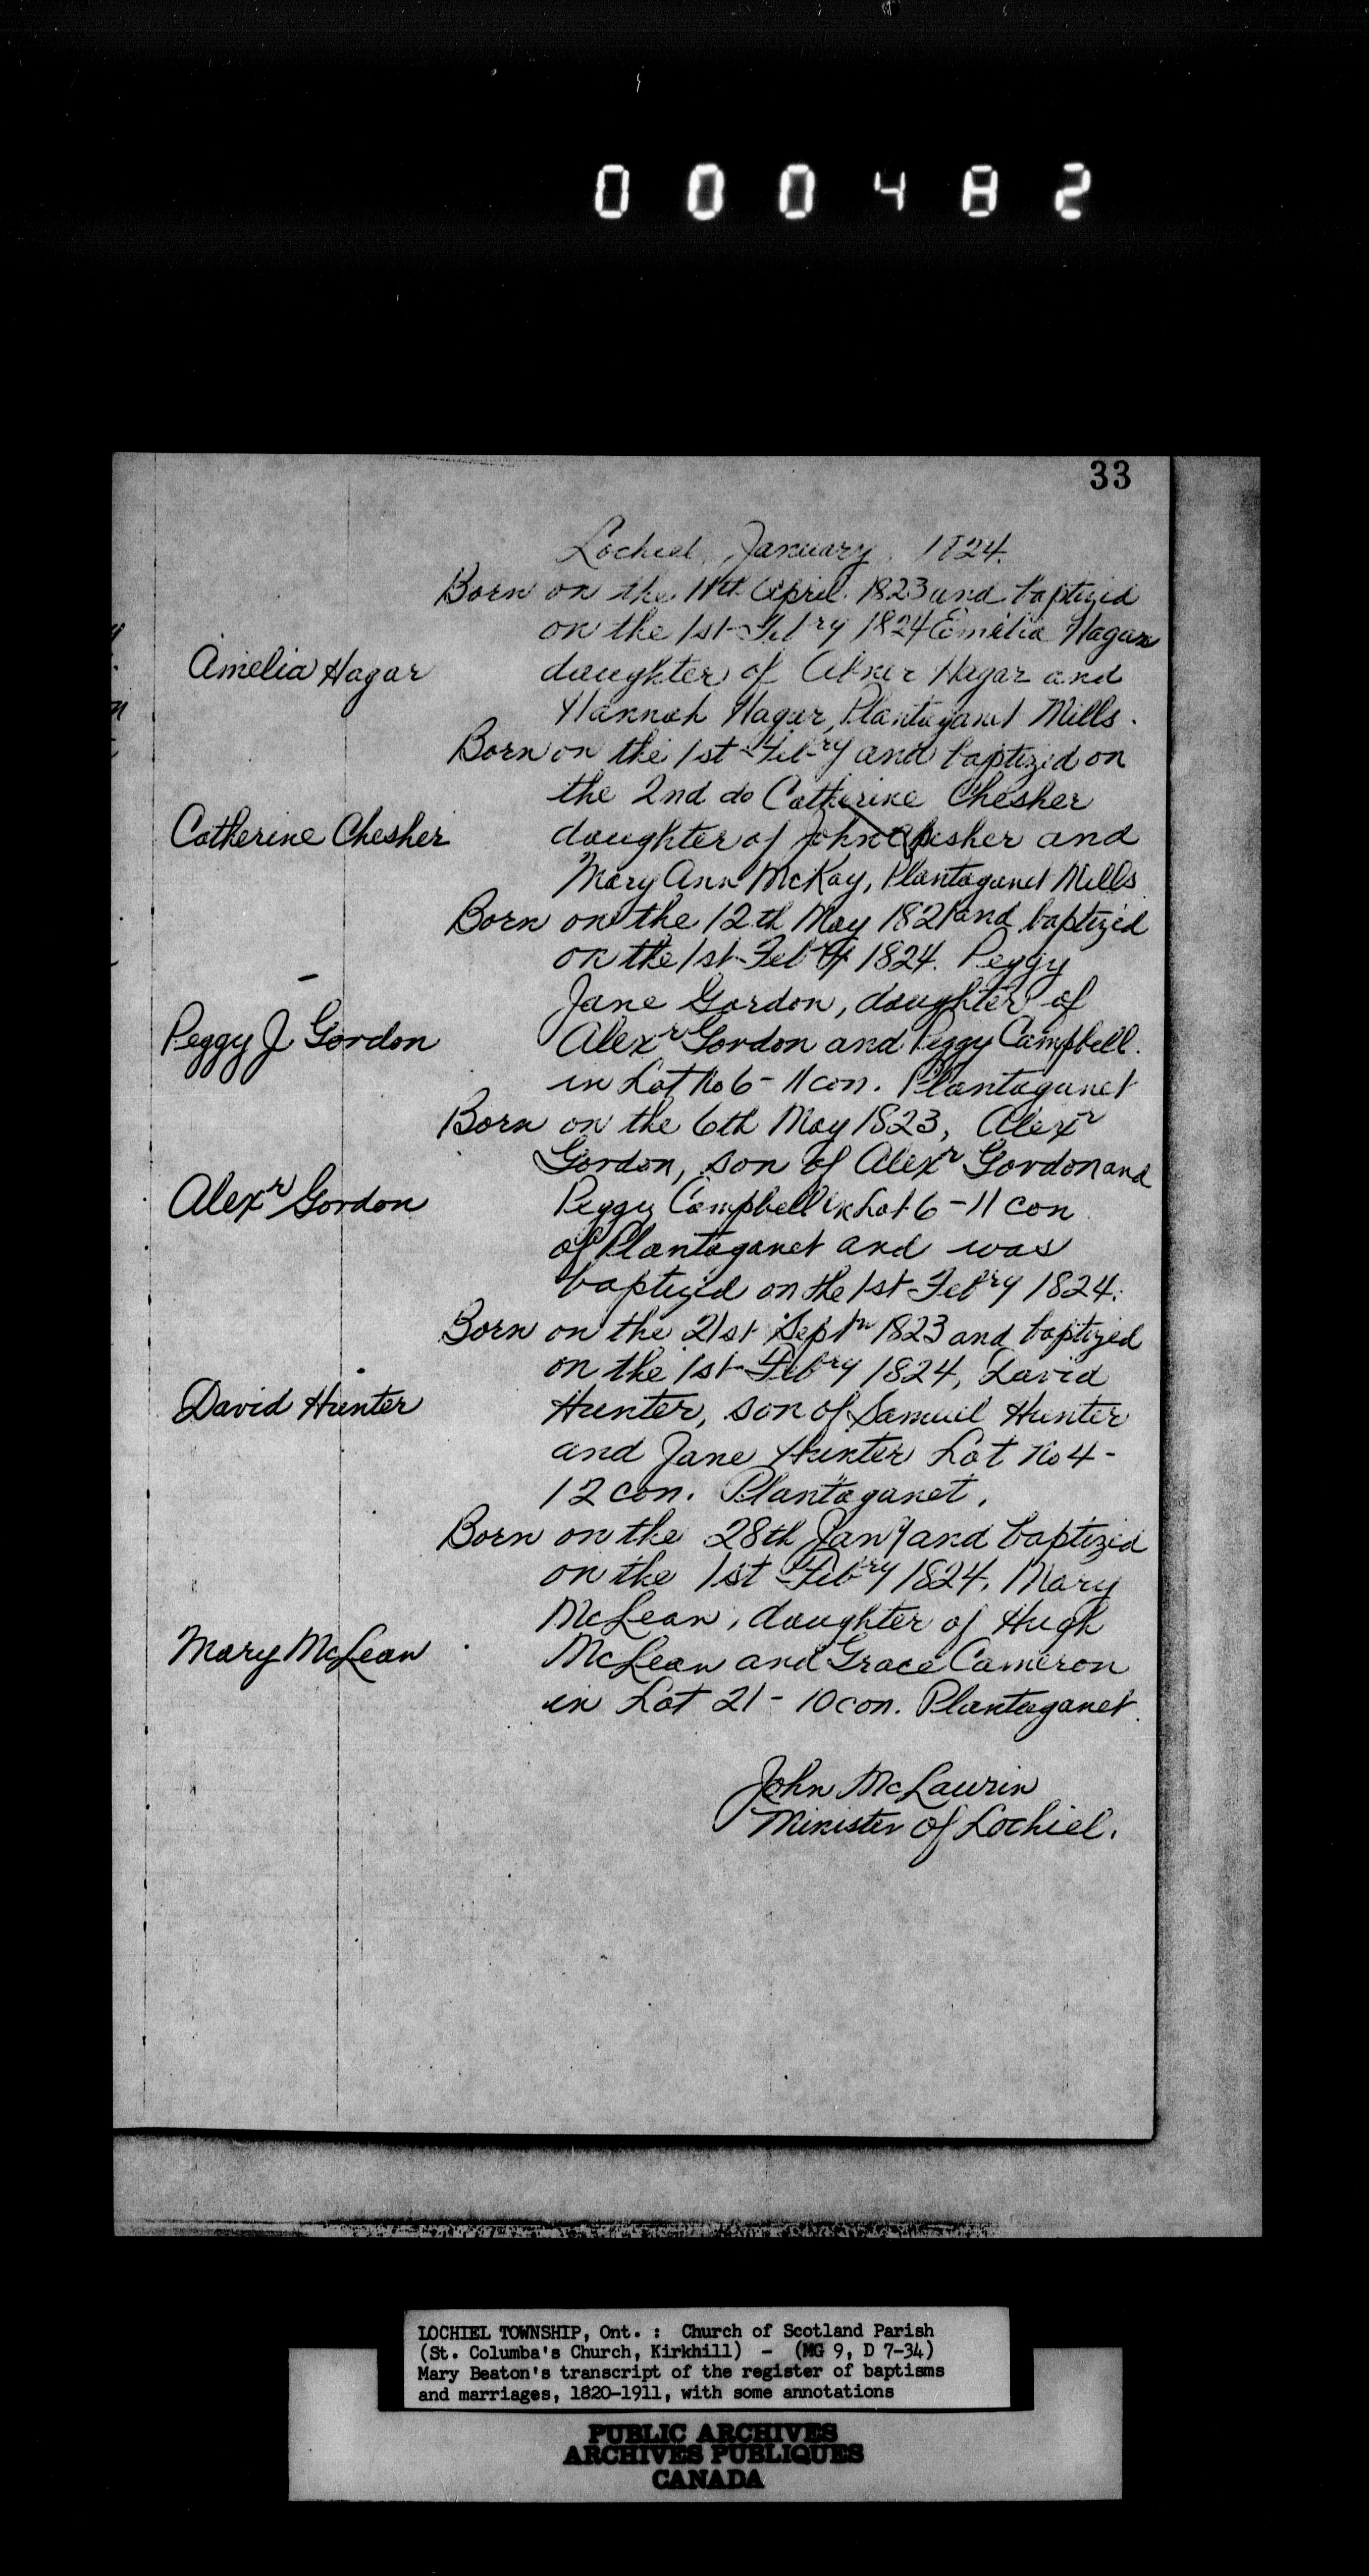 000482
33
Lochiel, January, 1824.
Born on the 11th April 1823 and baptized
on the 1st Febry 1824 Emélia Hagar
Amelia Hagar
daughter of Abner Hagar and
Hannah Hagar, Plantaganet Mills.
Born on the 1st Febry and baptized on
the 2nd do Catherine Chesher
Catherine Chesher
daughter of John Chesher and
Mary Ann McKay, Plantaganet Mills
Born on the 12th May 1821 and baptized
on the 1st Febry 1824. Peggy
Jane Gordon, daughter of
Peggy J Gordon
Alexr Gordon and Peggy Campbell.
in Lot No 6 - 11 con. Plantaganet
Born on the 6th May 1823, Alexr
Gordon, son of Alexr Gordon and
Alexr Gordon
Peggy Campbell in Lot 6 - 11 con
of Plantaganet and was
baptized on the 1st Febry 1824.
Born on the 21st Septm 1823 and baptized
on the 1st Febry 1824, David
David Hunter
Hunter, son of Samuel Hunter
and Jane Hunter Lot No 4 -
12 con. Plantaganet.
Born on the 28th Jany and baptized
on the 1st Febry 1824, Mary
McLean, daughter of Hugh
Mary McLean
McLean and Grace Cameron
in Lot 21 - 10 con. Plantaganet.
John McLaurin
Minister of Lochiel.
LOCHIEL TOWNSHIP, Ont. : Church of Scotland Parish
(St. Columba's Church, Kirkhill) - (MG 9, D 7-34)
Mary Beaton's transcript of the register of baptisms
and marriages, 1820-1911, with some annotations
PUBLIC ARCHIVES
ARCHIVES PUBLIQUES
CANADA